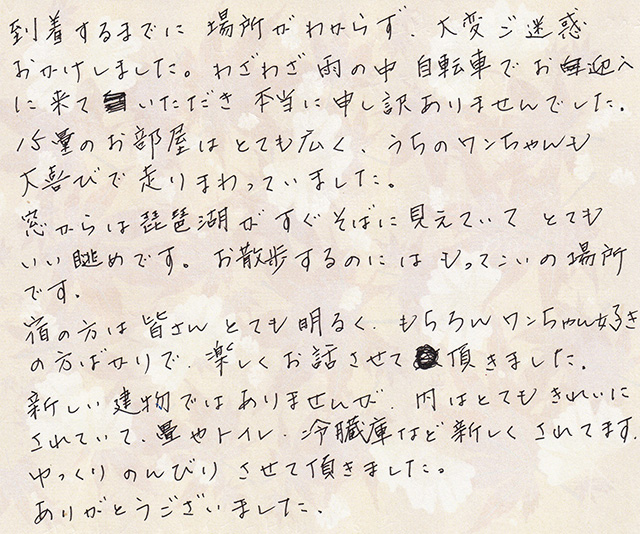 到着するまでに 場所がわからず、大変ご迷惑
おかけしました。わざわざ雨の中 自転車でお迎え
に来て いただき 本当に申し訳ありませんでした。
15畳のお部屋はとても広く、うちのワンちゃんも
大喜びで走りまわっていました。
窓からは琵琶湖がすぐそばに見えていて とても
いい眺めです。お散歩するのにはもってこいの場所
です。
宿の方は皆さんとても明るく、もちろんワンちゃん好き
の方ばかりで、楽しくお話させて頂きました。
新しい建物ではありませんが、内はとてもきれいに
されていて、畳やトイレ、冷臓庫など新しくされてます。
ゆっくりのんびりさせて頂きました。
ありがとうございました。